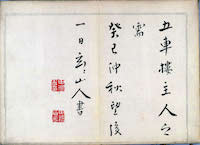 五車樓主人之
需
癸巳沖秋望後
一日玄山人書